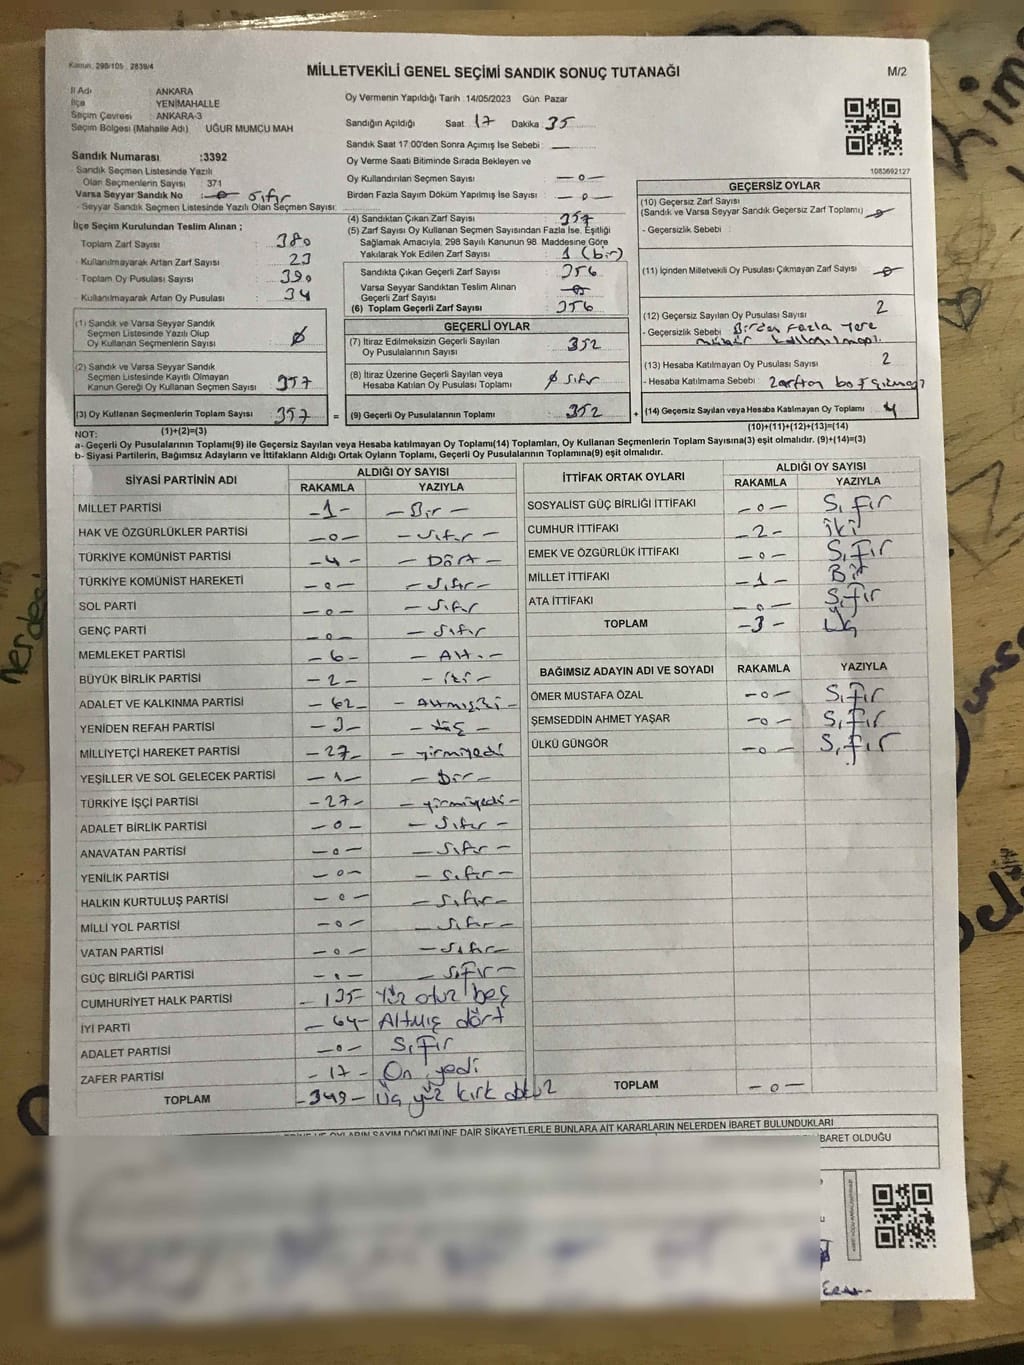 Kanun: 298/105 : 2839/4
MİLLETVEKİLİ GENEL SEÇİMİ SANDIK SONUÇ TUTANAĞI
M/2
İl Adı : ANKARA
İlçe : YENİMAHALLE
Seçim Çevresi : ANKARA-3
Seçim Bölgesi (Mahalle Adı) UĞUR MUMCU MAH
Oy Vermenin Yapıldığı Tarih :14/05/2023 Gün: Pazar
Sandığın Açıldığı Saat 17 Dakika 35
Sandık Saat 17:00'den Sonra Açımış İse Sebebi : —
Oy Verme Saati Bitiminde Sırada Bekleyen ve
Oy Kullandırılan Seçmen Sayısı : —0—
Birden Fazla Sayım Döküm Yapılmış İSe Sayısı : —0—
1083692127
Sandık Numarası :3392
- Sandık Seçmen Listesinde Yazılı
Olan Seçmenlerin Sayısı : 371
Varsa Seyyar Sandık No : 0 sıfır
- Seyyar Sandık Seçmen Listesinde Yazılı Olan Seçmen Sayısı:
İlçe Seçim Kurulundan Teslim Alınan ;
Toplam Zarf Sayısı : 380
- Kullanılmayarak Artan Zarf Sayısı : 23
- Toplam Oy Pusulası Sayısı : 390
- Kullanılmayarak Artan Oy Pusulası : 34
(1) Sandık ve Varsa Seyyar Sandık
Seçmen Listesinde Yazılı Olup
Oy Kullanan Seçmenlerin Sayısı : 0
(2) Sandık ve Varsa Seyyar Sandık
Seçmen Listesinde Kayıtlı Olmayan
Kanun Gereği Oy Kullanan Seçmen Sayısı : 357
(3) Oy Kullanan Seçmenlerin Toplam Sayısı : 357
(1)+(2)=(3)
(4) Sandıktan Çıkan Zarf Sayısı : 357
(5) Zarf Sayısı Oy Kullanan Seçmen Sayısından Fazla İse, Eşitliği
Sağlamak Amacıyla, 298 Sayılı Kanunun 98. Maddesine Göre
Yakılarak Yok Edilen Zarf Sayısı : 1 (bir)
Sandıkta Çıkan Geçerli Zarf Sayısı : 356
Varsa Seyyar Sandıktan Teslim Alınan
Geçerli Zarf Sayısı : 0
(6) Toplam Geçerli Zarf Sayısı : 356
GEÇERLİ OYLAR
(7) İtiraz Edilmeksizin Geçerli Sayılan
Oy Pusulalarının Sayısı : 352
(8) İtiraz Üzerine Geçerli Sayılan veya
Hesaba Katılan Oy Pusulası Toplamı : 0 sıfır
= (9) Geçerli Oy Pusulalarının Toplamı : 352
GEÇERSİZ OYLAR
(10) Geçersiz Zarf Sayısı
(Sandık ve Varsa Seyyar Sandık Geçersiz Zarf Toplamı) : 0
- Geçersizlik Sebebi :
(11) İçinden Milletvekili Oy Pusulası Çıkmayan Zarf Sayısı : 0
(12) Geçersiz Sayılan Oy Pusulası Sayısı : 2
- Geçersizlik Sebebi : Birden fazla yere
mühür
(13) Hesaba Katılmayan Oy Pusulası Sayısı : 2
- Hesaba Katılmama Sebebi : zarftan boş çıkması
+ (14) Geçersiz Sayılan veya Hesaba Katılmayan Oy Toplamı : 4
(10)+(11)+(12)+(13)=(14)
NOT:
a- Geçerli Oy Pusulalarının Toplamı(9) ile Geçersiz Sayılan veya Hesaba katılmayan Oy Toplamı(14) Toplamları, Oy Kullanan Seçmenlerin Toplam Sayısına(3) eşit olmalıdır. (9)+(14)=(3)
b- Siyasi Partilerin, Bağımsız Adayların ve İttifakların Aldığı Ortak Oyların Toplamı, Geçerli Oy Pusulalarının Toplamına(9) eşit olmalıdır.
SİYASİ PARTİNİN ADI ALDIĞI OY SAYISI
RAKAMLA YAZIYLA
MİLLET PARTİSİ -1- -Bir-
HAK VE ÖZGÜRLÜKLER PARTİSİ -0- -Sıfır-
TÜRKİYE KOMÜNİST PARTİSİ -4- -Dört-
TÜRKİYE KOMÜNİST HAREKETİ -0- -Sıfır-
SOL PARTİ -0- -Sıfır
GENÇ PARTİ -0- -Sıfır
MEMLEKET PARTİSİ -6- -Altı-
BÜYÜK BİRLİK PARTİSİ -2- -iki-
ADALET VE KALKINMA PARTİSİ -62- -Altmışiki-
YENİDEN REFAH PARTİSİ -3- -Üç-
MİLLİYETÇİ HAREKET PARTİSİ -27- -yirmiyedi
YEŞİLLER VE SOL GELECEK PARTİSİ -1- -Bir-
TÜRKİYE İŞÇİ PARTİSİ -27- -yirmiyedi-
ADALET BİRLİK PARTİSİ -0- -Sıfır-
ANAVATAN PARTİSİ -0- -Sıfır-
YENİLİK PARTİSİ -0- -Sıfır-
HALKIN KURTULUŞ PARTİSİ -0- -Sıfır-
MİLLİ YOL PARTİSİ -0- -Sıfır-
VATAN PARTİSİ -0- -Sıfır-
GÜÇ BİRLİĞİ PARTİSİ -0- -Sıfır-
CUMHURİYET HALK PARTİSİ -135- Yüz otuz beş
İYİ PARTİ -64- Altmış dört
ADALET PARTİSİ -0- Sıfır
ZAFER PARTİSİ -17- On yedi
TOPLAM -349- Üç yüz kırk dokuz
İTTİFAK ORTAK OYLARI ALDIĞI OY SAYISI
RAKAMLA YAZIYLA
SOSYALİST GÜÇ BİRLİĞİ İTTİFAKI -0- Sıfır
CUMHUR İTTİFAKI -2- iki
EMEK VE ÖZGÜRLÜK İTTİFAKI -0- Sıfır
MİLLET İTTİFAKI -1- Bir
ATA İTTİFAKI -0- Sıfır
TOPLAM -3- Üç
BAĞIMSIZ ADAYIN ADI VE SOYADI RAKAMLA YAZIYLA
ÖMER MUSTAFA ÖZAL -0- Sıfır
ŞEMSEDDİN AHMET YAŞAR -0- Sıfır
ÜLKÜ GÜNGÖR -0- Sıfır
TOPLAM -0-
OYLARIN SAYIM DÖKÜMÜNE DAİR ŞİKAYETLERLE BUNLARA AİT KARARLARIN NELERDEN İBARET BULUNDUKLARI
İBARET OLDUĞU